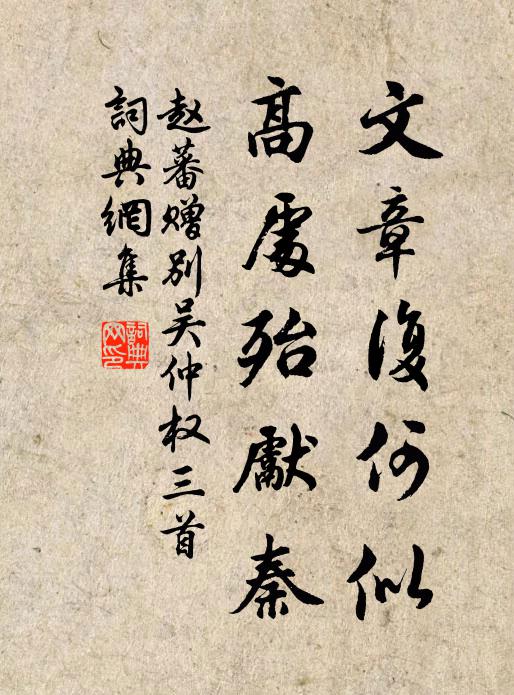 文章復何似
高處殆獻秦
赵蕃赠别吴仲权三首
詞典網集
詞典网印